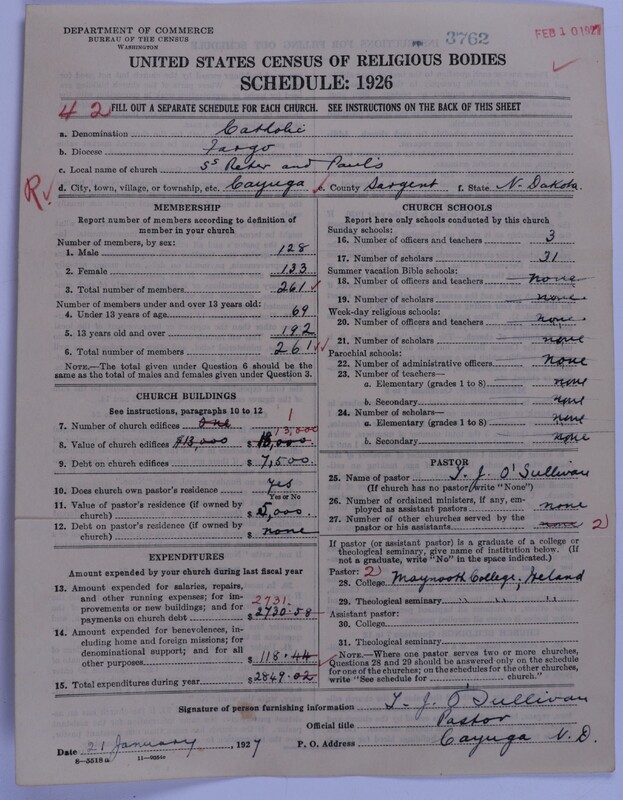 DEPARTMENT OF COMMERCE
BUREAU OF THE CENSUS
WASHINGTON
3762
FEB 10 1927
UNITED STATES CENSUS OF RELIGIOUS BODIES
SCHEDULE: 1926
42 FILL OUT A SEPARATE SCHEDULE FOR EACH CHURCH. SEE INSTRUCTIONS ON THE BACK OF THIS SHEET
a. Denomination Catholic
b. Diocese Fargo
c. Local name of church SS Peter and Paul's
R. d. City, town, village, or township, etc. Cayuga e. County Sargent f. State N. Dakota.
MEMBERSHIP
Report number of members according to definition of member in your church
Number of members, by sex:
1. Male 128
2. Female 133
3. Total number of members 261
Number of members under and over 13 years old:
4. Under 13 years of age 69
5. 13 years old and over 192
6. Total number of members 261
NOTE.—The total given under Question 6 should be the same as the total of males and females given under Question 3.
CHURCH BUILDINGS
See instructions, paragraphs 10 to 12
7. Number of church edifices One 1
8. Value of church edifices $13,000 $ 13,000
9. Debt on church edifices $ 7,500.
10. Does church own pastor's residence yes
Yes or No
11. Value of pastor's residence (if owned by church) $ 5,000.
12. Debt on pastor's residence (if owned by church) $ none
EXPENDITURES
Amount expended by your church during last fiscal year
13. Amount expended for salaries, repairs, and other running expenses; for improvements or new buildings; and for payments on church debt 2731. $ 2730.58
14. Amount expended for benevolences, including home and foreign missions; for denominational support; and for all other purposes $ 118.44
15. Total expenditures during year $ 2849.02
CHURCH SCHOOLS
Report here only schools conducted by this church
Sunday schools:
16. Number of officers and teachers 3
17. Number of scholars 31
Summer vacation Bible schools:
18. Number of officers and teachers none
19. Number of scholars none
Week-day religious schools:
20. Number of officers and teachers none
21. Number of scholars none
Parochial schools:
22. Number of administrative officers none
23. Number of teachers—
a. Elementary (grades 1 to 8) none
b. Secondary none
24. Number of scholars—
a. Elementary (grades 1 to 8) none
b. Secondary none
PASTOR
25. Name of pastor T. J. O'Sullivan
(If church has no pastor, write "None")
26. Number of ordained ministers, if any, employed as assistant pastors none
27. Number of other churches served by the pastor or his assistants none 2)
If pastor (or assistant pastor) is a graduate of a college or theological seminary, give name of institution below. (If not a graduate, write "No" in the space indicated.)
Pastor: 2)
28. College Maynooth College, Ireland
29. Theological seminary " " "
Assistant pastor:
30. College
31. Theological seminary
NOTE.—Where one pastor serves two or more churches, Questions 28 and 29 should be answered only on the schedule for one of the churches; on the schedules for the other churches, write "See schedule for church."
Signature of person furnishing information T. J. O'Sullivan
Official title Pastor
Date 21 January, 1927 P. O. Address Cayuga N. D.
8—5518a 11—9054a